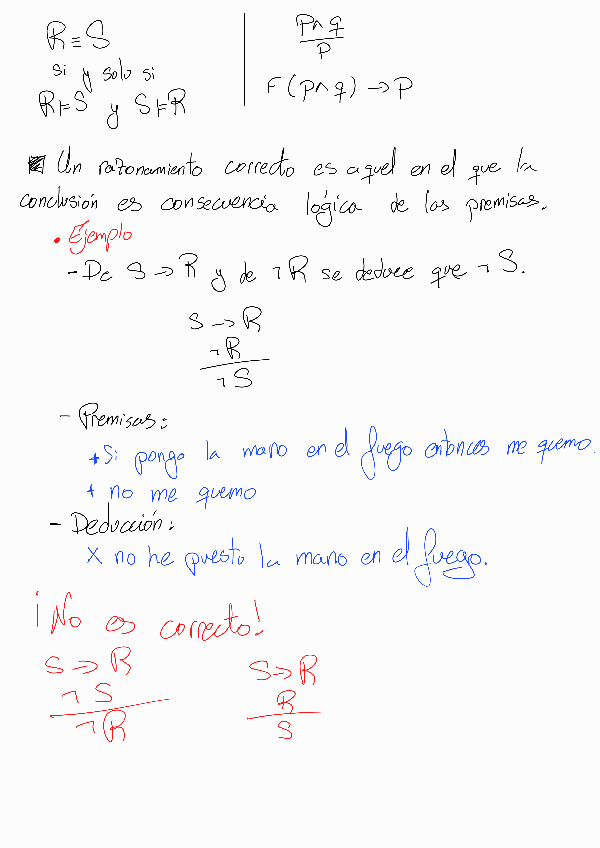 R ≡ S
si y solo si
R ⊨ S y S ⊨ R
p ∧ q
p
F (p ∧ q) → p
Un razonamiento correcto es aquel en el que la
conclusión es consecuencia lógica de las premisas.
• Ejemplo
- De S → R y de ¬ R se deduce que ¬ S.
S → R
¬ R
¬ S
- Premisas:
+ Si pongo la mano en el fuego entonces me quemo.
+ no me quemo
- Deducción:
X no he puesto la mano en el fuego.
¡No es correcto!
S → R
¬ S
¬ R
S → R
R
S